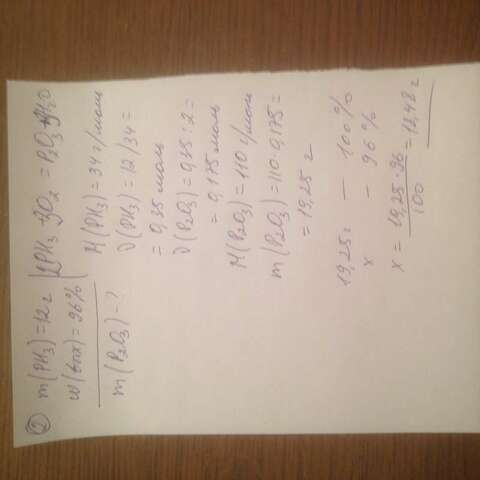 ② m(PH₃) = 12 г
w(вых) = 96%
m(P₂O₃) - ?
2PH₃ + 3O₂ = P₂O₃ + 3H₂O
M(PH₃) = 34 г/моль
ν(PH₃) = 12/34 =
= 0,35 моль
ν(P₂O₃) = 0,35 : 2 =
= 0,175 моль
M(P₂O₃) = 110 г/моль
m(P₂O₃) = 110 · 0,175 =
= 19,25 г
19,25 г — 100%
x — 96%
x = 19,25 · 96 / 100 = 18,48 г